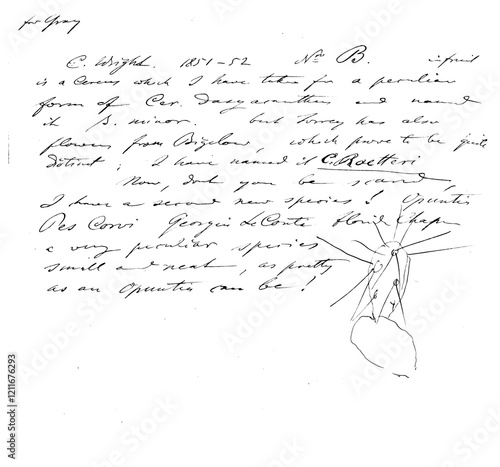 for Gray
C. Wright. 1851-52 Nro B. in fruit
is a Cereus which I have taken for a peculiar
form of Cer. Dasyacanthus and named
it β. minor. but Torrey has also
flowers from Bigelow, which prove to be quite
distinct; I have named it C. Roetteri
Now, dont you be scared,
I have a second new species! Opuntia
Pes Corvi Georgia LeConte Florid. Chapm
a very peculiar species
small and neat, as pretty
as an Opuntia can be!
Adobe Stock
Adobe Stock | #1211676293